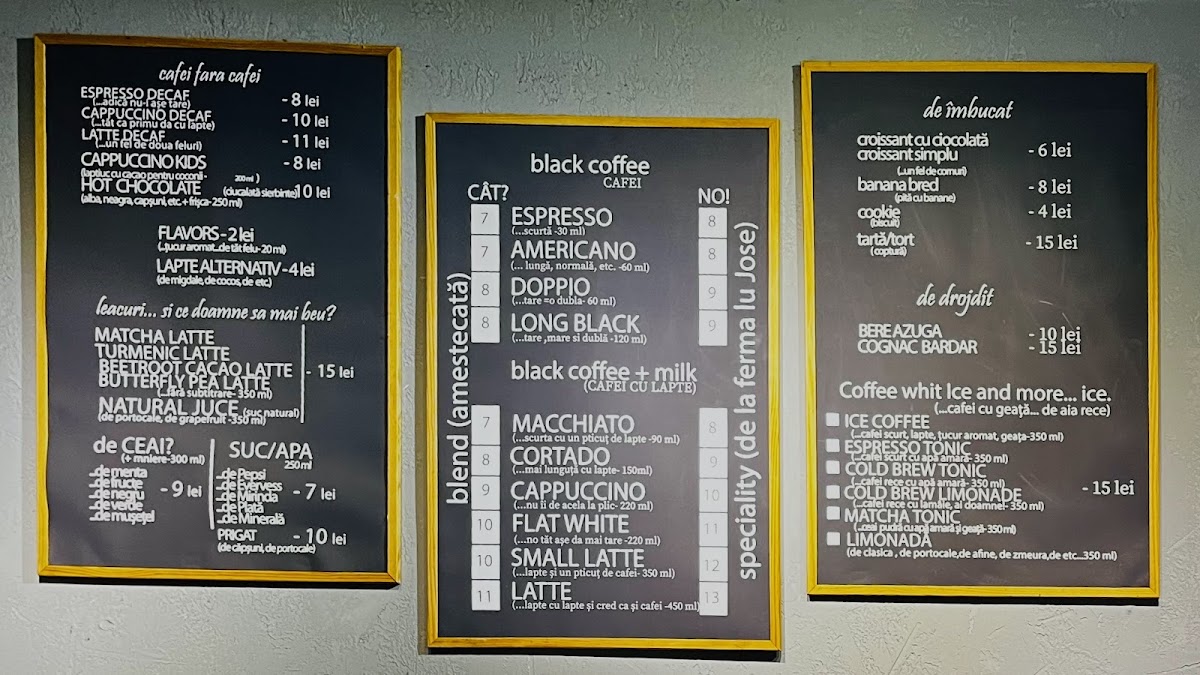 cafei fara cafei
ESPRESSO DECAF - 8 lei
(...adică nu-i așe tare)
CAPPUCCINO DECAF - 10 lei
(...tăt ca primu da cu lapte)
LATTE DECAF - 11 lei
(...un fel de doua feluri)
CAPPUCCINO KIDS - 8 lei
(laptiuc cu cacao pentru coconii - 200 ml )
HOT CHOCOLATE (ciucalată sierbinte) 10 lei
(alba, neagra, capșuni, etc. + frișca- 250 ml)
FLAVORS - 2 lei
(...țucur aromat...de tăt felu- 20 ml)
LAPTE ALTERNATIV - 4 lei
(de migdale, de cocos, de etc.)
leacuri... si ce doamne sa mai beu?
MATCHA LATTE
TURMENIC LATTE
BEETROOT CACAO LATTE - 15 lei
BUTTERFLY PEA LATTE
(...fără subtitrare- 350 ml)
NATURAL JUCE (suc natural)
(de portocale, de grapefruit -350 ml)
de CEAI?
(+ mniere-300 ml)
...de menta
...de fructe
...de negru - 9 lei
...de verde
...de mușețel
SUC/APA
250 ml
...de Pepsi
...de Evervess
...de Mirinda - 7 lei
...de Plată
...de Minerală
PRIGAT - 10 lei
(de căpșuni, de portocale)
black coffee
CAFEI
CÂT? NO!
7 ESPRESSO 8
(...scurtă -30 ml)
7 AMERICANO 8
(... lungă, normală, etc. -60 ml)
8 DOPPIO 9
(...tare =o dubla- 60 ml)
8 LONG BLACK 9
(...tare ,mare si dublă -120 ml)
black coffee + milk
(CAFEI CU LAPTE)
7 MACCHIATO 8
(...scurta cu un pticuț de lapte -90 ml)
8 CORTADO 9
(...mai lunguță cu lapte- 150ml)
9 CAPPUCCINO 10
(...nu îi de acela la plic- 220 ml)
10 FLAT WHITE 11
(...no tăt așe da mai tare -220 ml)
10 SMALL LATTE 12
(...lapte și un pticuț de cafei- 350 ml)
11 LATTE 13
(...lapte cu lapte și cred ca și cafei -450 ml)
blend (amestecată)
speciality (de la ferma lu Jose)
de îmbucat
croissant cu ciocolată
croissant simplu - 6 lei
(...un fel de cornuri)
banana bred - 8 lei
(pită cu banane)
cookie - 4 lei
(biscuit)
tartă/tort - 15 lei
( coptură)
de drojdit
BERE AZUGA - 10 lei
COGNAC BARDAR - 15 lei
Coffee whit Ice and more... ice.
(...cafei cu geață... de aia rece)
ICE COFFEE
(...cafei scurt, lapte, țucur aromat, geața-350 ml)
ESPRESSO TONIC
(...cafei scurt cu apă amară- 350 ml)
COLD BREW TONIC
(...cafei rece cu apă amară- 350 ml)
COLD BREW LIMONADE - 15 lei
(...cafei rece cu lamâie, ai doamne!- 350 ml)
MATCHA TONIC
(...ceai pudră cu apă amară și geață- 350 ml)
LIMONADĂ
(de clasica , de portocale,de afine, de zmeura,de etc...350 ml)